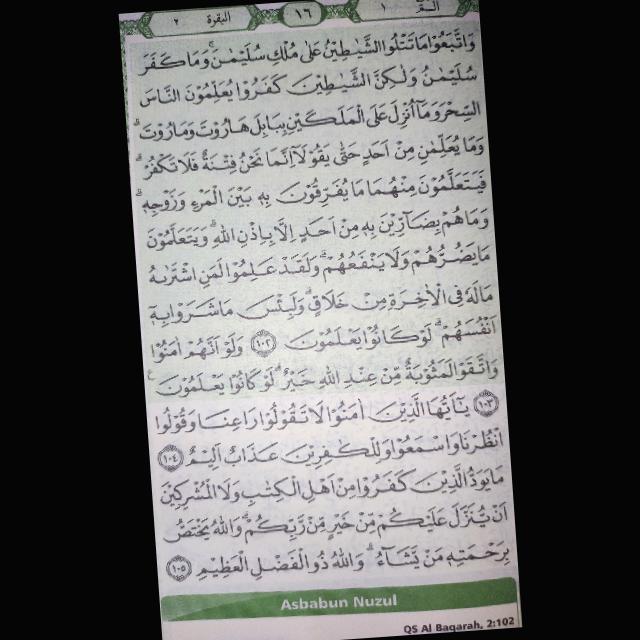 الۤمّۤ ١ ١٦ البقرة ٢
وَاتَّبَعُوْا مَا تَتْلُوا الشَّيٰطِيْنُ عَلٰى مُلْكِ سُلَيْمٰنَ ۚ وَمَا كَفَرَ
سُلَيْمٰنُ وَلٰكِنَّ الشَّيٰطِيْنَ كَفَرُوْا يُعَلِّمُوْنَ النَّاسَ
السِّحْرَ وَمَآ اُنْزِلَ عَلَى الْمَلَكَيْنِ بِبَابِلَ هَارُوْتَ وَمَارُوْتَ ۗ
وَمَا يُعَلِّمٰنِ مِنْ اَحَدٍ حَتّٰى يَقُوْلَآ اِنَّمَا نَحْنُ فِتْنَةٌ فَلَا تَكْفُرْ ۗ
فَيَتَعَلَّمُوْنَ مِنْهُمَا مَا يُفَرِّقُوْنَ بِهٖ بَيْنَ الْمَرْءِ وَزَوْجِهٖ ۗ
وَمَا هُمْ بِضَاۤرِّيْنَ بِهٖ مِنْ اَحَدٍ اِلَّا بِاِذْنِ اللّٰهِ ۗ وَيَتَعَلَّمُوْنَ
مَا يَضُرُّهُمْ وَلَا يَنْفَعُهُمْ ۗ وَلَقَدْ عَلِمُوْا لَمَنِ اشْتَرٰىهُ
مَا لَهٗ فِى الْاٰخِرَةِ مِنْ خَلَاقٍ ۗ وَلَبِئْسَ مَا شَرَوْا بِهٖٓ
اَنْفُسَهُمْ ۗ لَوْ كَانُوْا يَعْلَمُوْنَ ١٠٢ وَلَوْ اَنَّهُمْ اٰمَنُوْا
وَاتَّقَوْا لَمَثُوْبَةٌ مِّنْ عِنْدِ اللّٰهِ خَيْرٌ ۗ لَوْ كَانُوْا يَعْلَمُوْنَ ع
١٠٣ يٰٓاَيُّهَا الَّذِيْنَ اٰمَنُوْا لَا تَقُوْلُوْا رَاعِنَا وَقُوْلُوا
انْظُرْنَا وَاسْمَعُوْا وَلِلْكٰفِرِيْنَ عَذَابٌ اَلِيْمٌ ١٠٤
مَا يَوَدُّ الَّذِيْنَ كَفَرُوْا مِنْ اَهْلِ الْكِتٰبِ وَلَا الْمُشْرِكِيْنَ
اَنْ يُّنَزَّلَ عَلَيْكُمْ مِّنْ خَيْرٍ مِّنْ رَّبِّكُمْ ۗ وَاللّٰهُ يَخْتَصُّ
بِرَحْمَتِهٖ مَنْ يَّشَاۤءُ ۗ وَاللّٰهُ ذُو الْفَضْلِ الْعَظِيْمِ ١٠٥
Asbabun Nuzul
QS Al Baqarah, 2:102